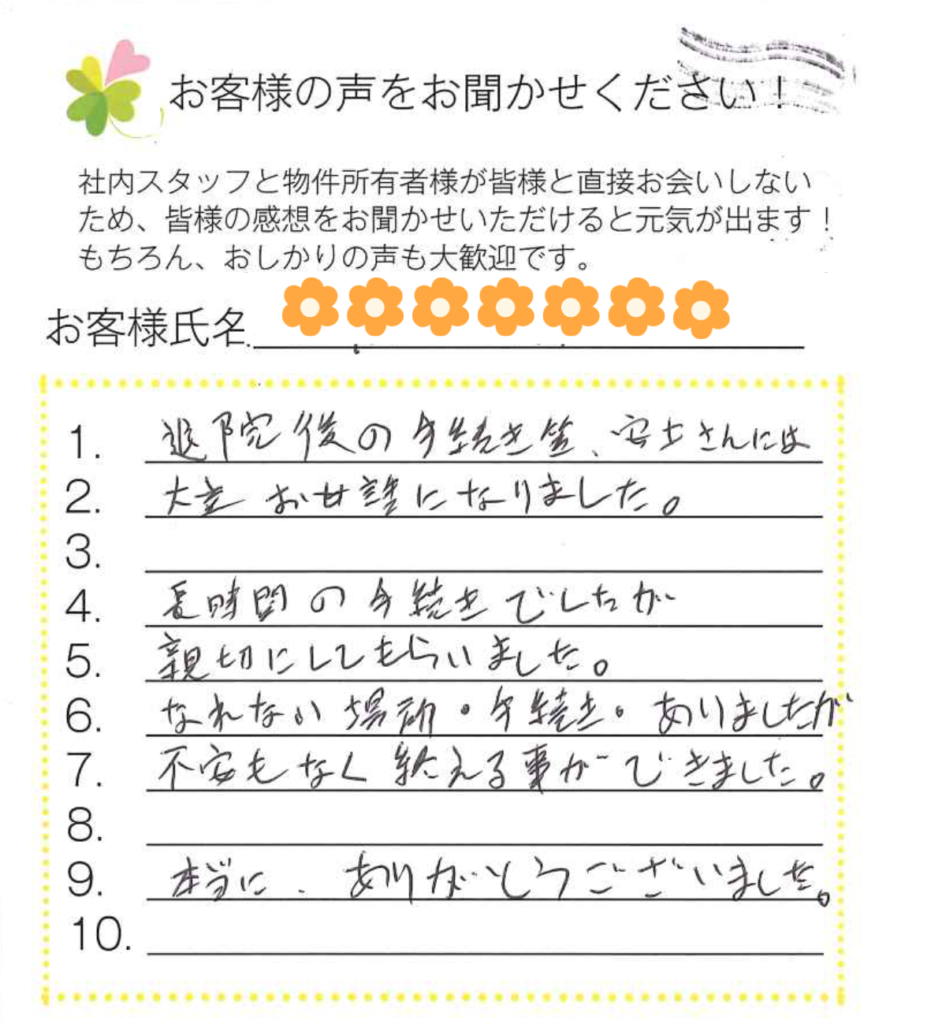 お客様の声をお聞かせください！
社内スタッフと物件所有者様が皆様と直接お会いしない
ため、皆様の感想をお聞かせいただけると元気が出ます！
もちろん、おしかりの声も大歓迎です。
お客様氏名
1. 退院後の手続き等、安士さんには
2. 大変お世話になりました。
3.
4. 長時間の手続きでしたが
5. 親切にしてもらいました。
6. なれない場所・手続き・ありましたが
7. 不安もなく終える事ができました。
8.
9. 本当に、ありがとうございました。
10.